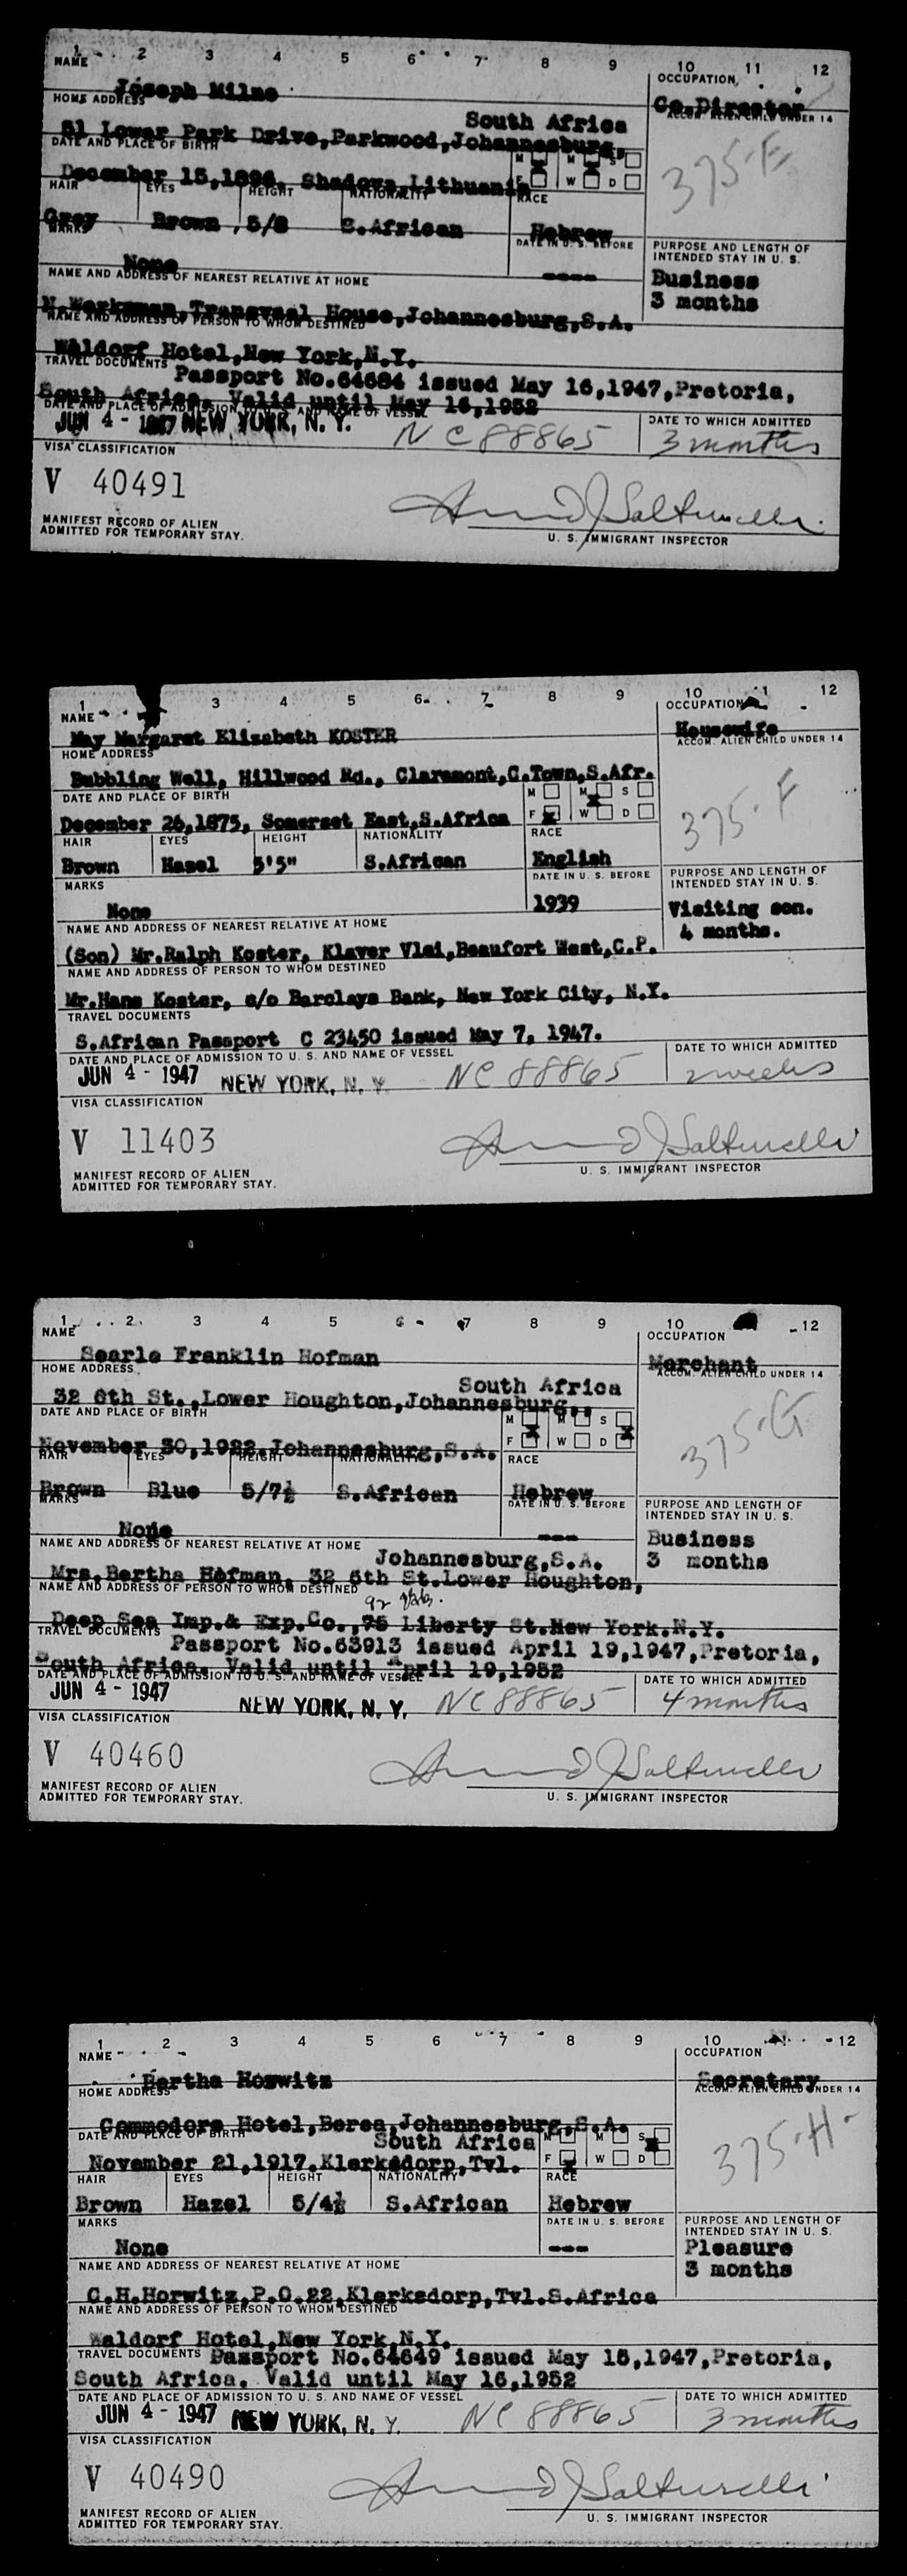 1 2 3 4 5 6 7 8 9 10 11 12
NAME
OCCUPATION
Joseph Milne
Co.Director
HOME ADDRESS
ACCOM. ALIEN CHILD UNDER 14
South Africa
51 Lower Park Drive,Parkwood,Johannesburg,
DATE AND PLACE OF BIRTH
M M S
375-E
December 15,1896. Shadova,Lithuania
F W D
HAIR EYES HEIGHT NATIONALITY RACE
Grey Brown 5/8 S.African Hebrew
MARKS
DATE IN U. S. BEFORE
PURPOSE AND LENGTH OF
INTENDED STAY IN U. S.
None ----
Business
3 months
NAME AND ADDRESS OF NEAREST RELATIVE AT HOME
N.Werksman,Transvaal House,Johannesburg,S.A.
NAME AND ADDRESS OF PERSON TO WHOM DESTINED
Waldorf Hotel,New York,N.Y.
TRAVEL DOCUMENTS
Passport No.64684 issued May 16,1947,Pretoria,
South Africa. Valid until May 16,1952
DATE AND PLACE OF ADMISSION TO U. S. AND NAME OF VESSEL
DATE TO WHICH ADMITTED
JUN 4 - 1947 NEW YORK, N. Y. NC88865 3 months
VISA CLASSIFICATION
V 40491
MANIFEST RECORD OF ALIEN
ADMITTED FOR TEMPORARY STAY.
U. S. IMMIGRANT INSPECTOR
1 3 4 5 6 7 8 9 10 11 12
NAME
OCCUPATION
May Margaret Elizabeth KOSTER
Housewife
HOME ADDRESS
ACCOM. ALIEN CHILD UNDER 14
Bubbling Well, Hillwood Rd., Claremont,C.Town,S.Afr.
DATE AND PLACE OF BIRTH
M M S
375-F
December 26,1875, Somerset East,S.Africa
F W D
HAIR EYES HEIGHT NATIONALITY RACE
Brown Hazel 5'5" S.African English
MARKS
DATE IN U. S. BEFORE
PURPOSE AND LENGTH OF
INTENDED STAY IN U. S.
None 1939
Visiting son.
4 months.
NAME AND ADDRESS OF NEAREST RELATIVE AT HOME
(Son) Mr.Ralph Koster, Klaver Vlei,Beaufort West,C.P.
NAME AND ADDRESS OF PERSON TO WHOM DESTINED
Mr.Hans Koster, c/o Barclays Bank, New York City, N.Y.
TRAVEL DOCUMENTS
S.African Passport C 23450 issued May 7, 1947.
DATE AND PLACE OF ADMISSION TO U. S. AND NAME OF VESSEL
DATE TO WHICH ADMITTED
JUN 4 - 1947 NEW YORK, N. Y. NC 88865 2 weeks
VISA CLASSIFICATION
V 11403
MANIFEST RECORD OF ALIEN
ADMITTED FOR TEMPORARY STAY.
U. S. IMMIGRANT INSPECTOR
1 2 3 4 5 6 7 8 9 10 12
NAME
OCCUPATION
Searle Franklin Hofman
Merchant
HOME ADDRESS
ACCOM. ALIEN CHILD UNDER 14
South Africa
32 6th St.,Lower Houghton,Johannesburg,,
DATE AND PLACE OF BIRTH
M M S
375-G
November 30,1922.Johannesburg,S.A.
F W D
HAIR EYES HEIGHT NATIONALITY RACE
Brown Blue 5/7½ S.African Hebrew
MARKS
DATE IN U. S. BEFORE
PURPOSE AND LENGTH OF
INTENDED STAY IN U. S.
None ---
Business
3 months
NAME AND ADDRESS OF NEAREST RELATIVE AT HOME
Johannesburg,S.A.
Mrs.Bertha Hofman, 32 6th St.Lower Houghton,
NAME AND ADDRESS OF PERSON TO WHOM DESTINED
Deep Sea Imp.& Exp.Co.,75 Liberty St.New York.N.Y.
TRAVEL DOCUMENTS
Passport No.63913 issued April 19,1947,Pretoria,
South Africa. Valid until April 19,1952
DATE AND PLACE OF ADMISSION TO U. S. AND NAME OF VESSEL
DATE TO WHICH ADMITTED
JUN 4 - 1947 NEW YORK, N. Y. NC88865 4 months
VISA CLASSIFICATION
V 40460
MANIFEST RECORD OF ALIEN
ADMITTED FOR TEMPORARY STAY.
U. S. IMMIGRANT INSPECTOR
1 2 3 4 5 6 7 8 9 10 11 12
NAME
OCCUPATION
Bertha Horwitz
Secretary
HOME ADDRESS
ACCOM. ALIEN CHILD UNDER 14
Commodore Hotel,Berea,Johannesburg,S.A.
DATE AND PLACE OF BIRTH
South Africa
M M S
375-H-
November 21,1917.Klerksdorp,Tvl.
F W D
HAIR EYES HEIGHT NATIONALITY RACE
Brown Hazel 5/4½ S.African Hebrew
MARKS
DATE IN U. S. BEFORE
PURPOSE AND LENGTH OF
INTENDED STAY IN U. S.
None ---
Pleasure
3 months
NAME AND ADDRESS OF NEAREST RELATIVE AT HOME
C.H.Horwitz,P.O.22,Klerksdorp,Tvl.S.Africa
NAME AND ADDRESS OF PERSON TO WHOM DESTINED
Waldorf Hotel,New York,N.Y.
TRAVEL DOCUMENTS Passport No.64649 issued May 15,1947,Pretoria,
South Africa. Valid until May 16,1952
DATE AND PLACE OF ADMISSION TO U. S. AND NAME OF VESSEL
DATE TO WHICH ADMITTED
JUN 4 - 1947 NEW YORK, N. Y. NC 88865 3 months
VISA CLASSIFICATION
V 40490
MANIFEST RECORD OF ALIEN
ADMITTED FOR TEMPORARY STAY.
U. S. IMMIGRANT INSPECTOR